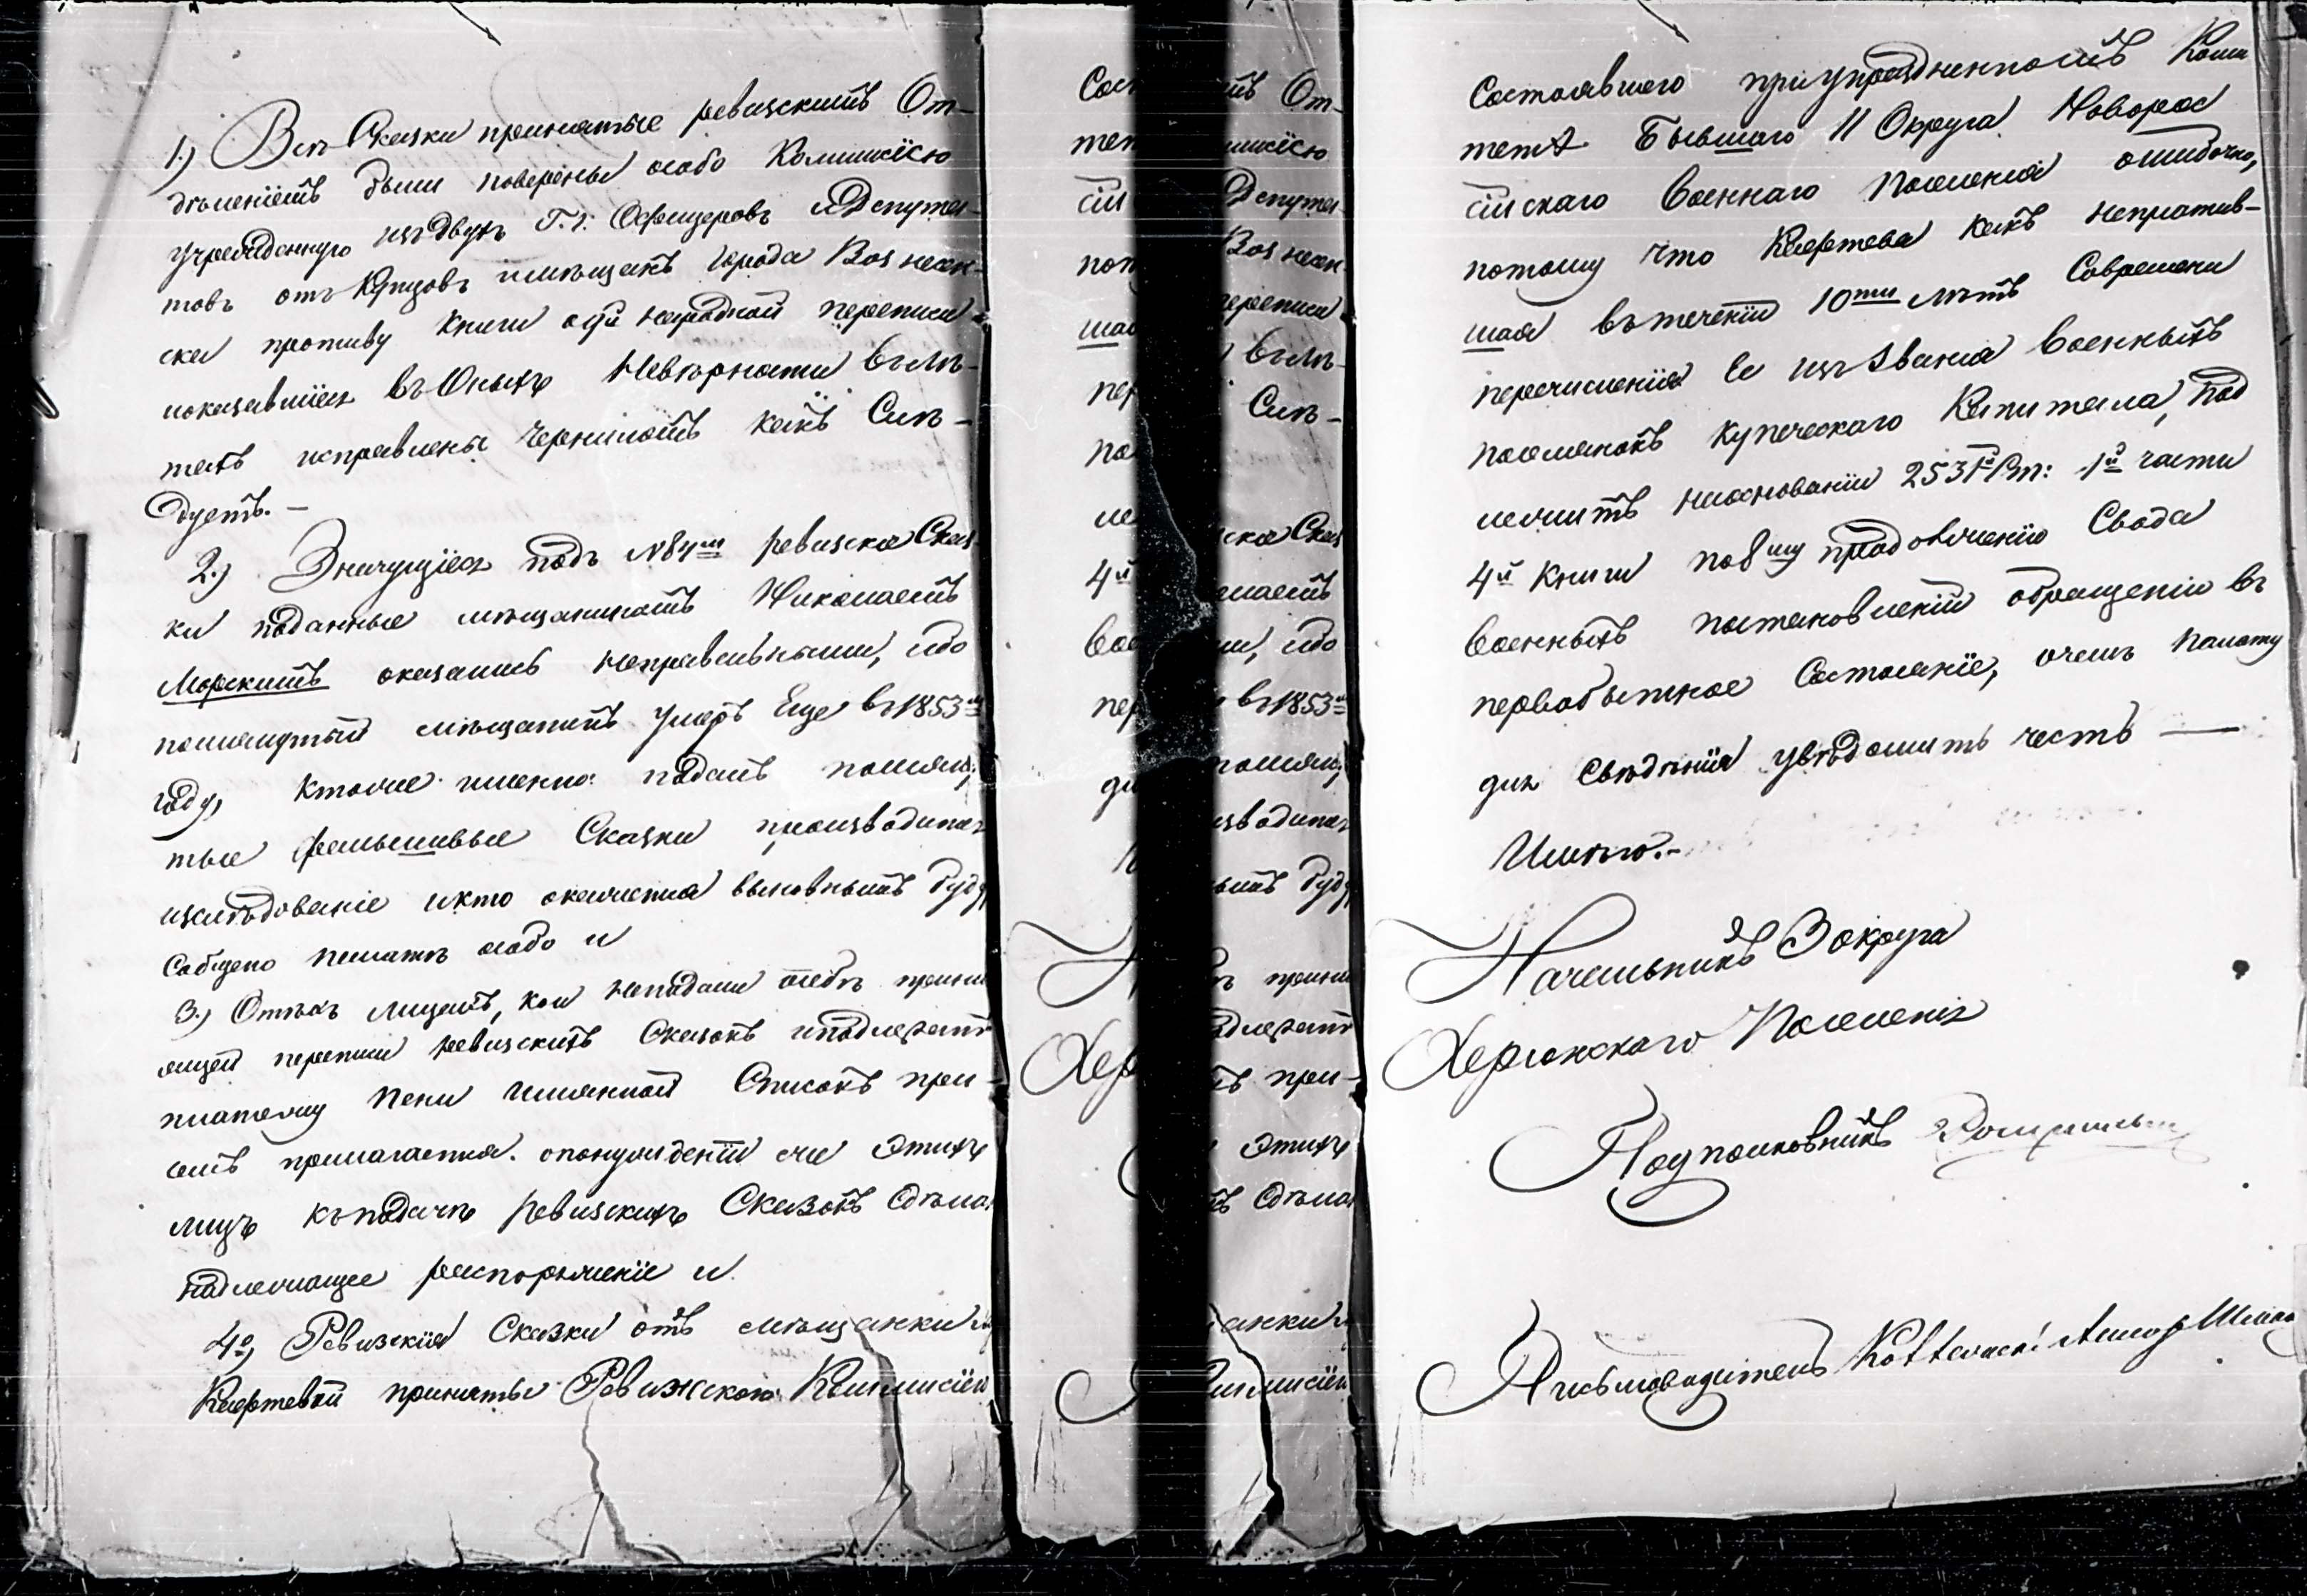 1.) Всѣ Сказки принятые ревизскимъ От-
дѣленіемъ были поверены особо Коммисіею
учрежденную изъ двухъ Г.г. Офицеровъ и Депута-
товъ отъ Купцовъ и мѣщанъ города Вознесен-
ска противу книги о 9й народной переписи
показавшіеся въ Оныхъ Невѣрности въ лѣ-
тахъ исправлены Черниломъ какъ Слѣ-
дуетъ.-
2.) Значущіеся подъ №84мъ ревизска Сказ-
ки поданные мѣщаниномъ Николаемъ
Морскимъ оказались неправильными, ибо
помянутый мѣщанинъ умеръ Еще въ 1853мъ
году, Кто же именно подалъ помяну-
тые фальшивые Сказки производится
изслѣдованіе и кто окажется виновнымъ буде
Собщено палатѣ особо и
3.) О тѣхъ лицахъ, кои неподали
ящей переписи ревизскихъ Сказокъ и подлежатъ
платежу пени имянной Списокъ при-
семъ прилагается. о понужденіи же Этихъ
лицъ къ подачѣ ревизскихъ Сказокъ Сдѣлано
надлежащее распоряженіе и
4е) Ревизскія Сказки отъ мѣщанки
Кафтевой приняты Ревизскою Коммисіею
Состоявшего при упраздненномъ Коми
тетѣ Бывшаго 11 Округа Новорос
сійскаго Военнаго поселенія ошибочно,
потому что Кафтева какъ неплатив-
шая въ теченіи 10ти лѣтъ Современи
перечисленія Ея изъ званія военныхъ
поселянокъ купеческаго Капитала, под
лежитъ на основаніи 253й Ст: 1й части
4й Книги по 8му продолженію Свода
Военныхъ постановленій обращенію въ
первобытное Состояніе, о чемъ палату
для Свѣдѣнія увѣдомить честь
Имѣю.-
Начальникъ 3 округа
Херсонскаго Поселенія
Подполковникъ
Письмоводитель